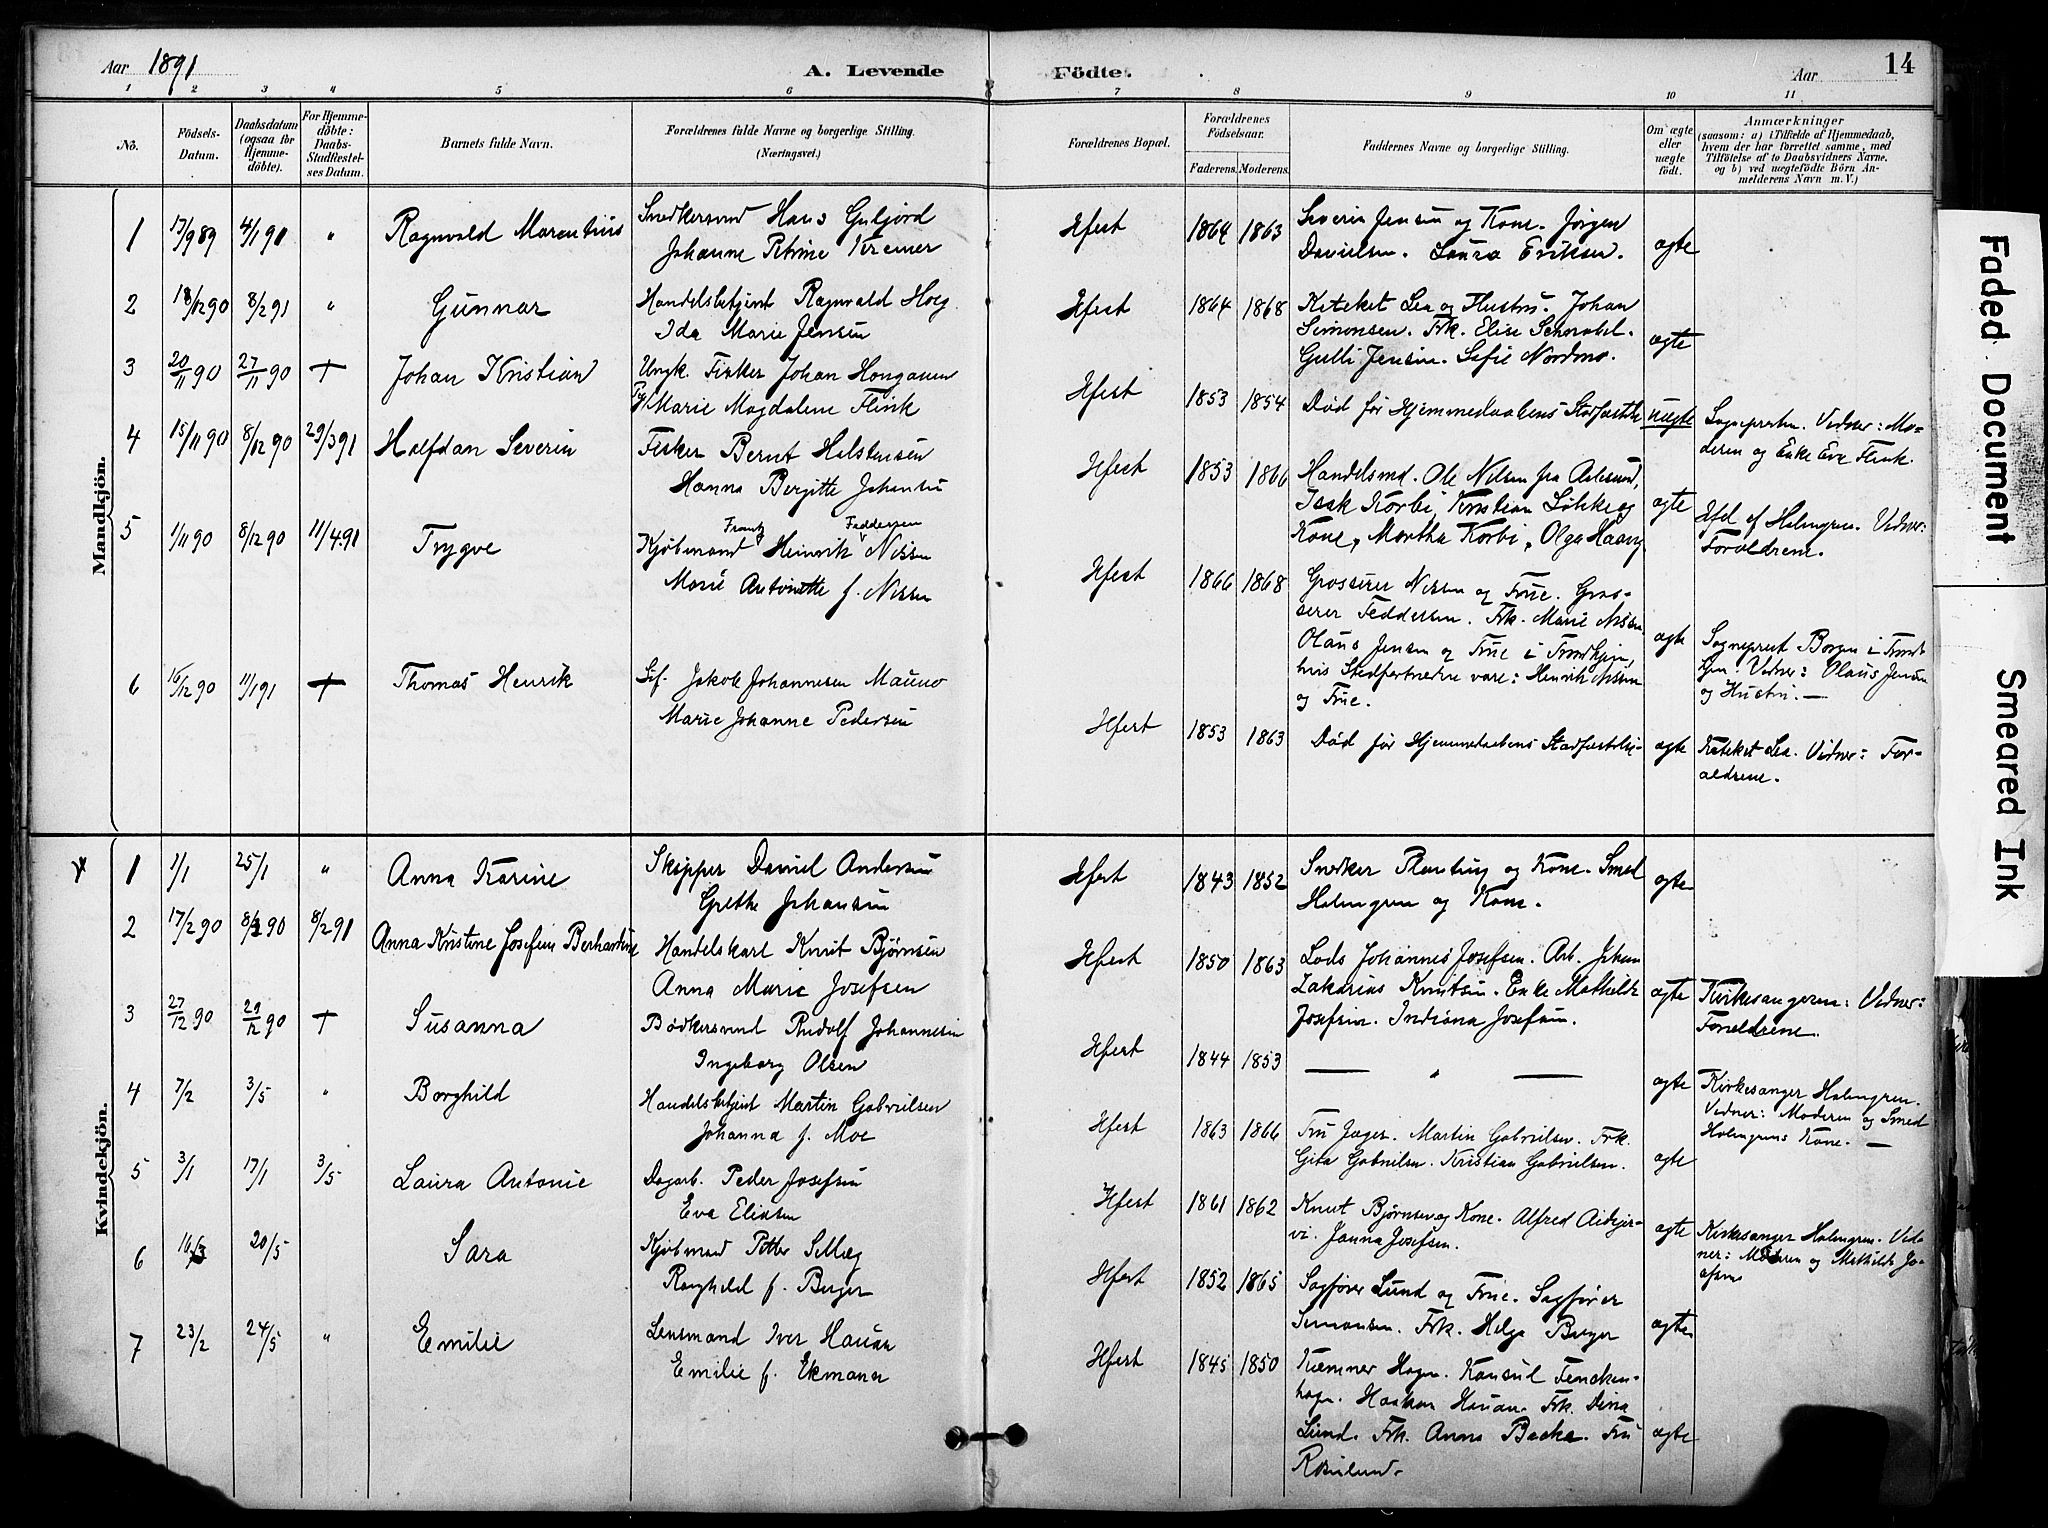 Aar 1891
A. Levende
Födte.
Aar
14
1 2 3 4 5 6 7 8 9 10 11
No.
Födsels-
Datum.
Daabsdatum
(ogsaa for
Hjemme-
döbte).
For Hjemme-
döbte:
Daabs-
Stadfæstel-
ses Datum.
Barnets fulde Navn.
Forældrenes fulde Navne og borgerlige Stilling.
(Næringsvei.)
Forældrenes Bopæl.
Forældrenes
Födselsaar.
Faderens. Moderens.
Faddernes Navne og borgerlige Stilling.
Om ægte
eller
uægte
födt.
Anmærkninger
(saasom: a) i Tilfælde af Hjemmedaab,
hvem der har forrettet samme, med
Tilföielse af to Daabsvidners Navne,
og b) ved uægtefödte Börn An-
melderens Navn m. V.)
Mandkjön.
1 13/9 89 4/1 91 " Ragnvald Marentius
Snedkersvend Hans Guljord
Johanne Petrine Kremer
Hfest 1864 1863
Severin Jensen og Kone. Jørgen
Danielsen. Laura Eriksen.
ægte
2 18/12 90 8/2 91 " Gunnar
Handelsbetjent Ragnvald Hoeg
Ida Marie Jensen
Hfest 1864 1868
Kateket Lea og Hustru. Johan
Simonsen. Frk. Elise
Gulli Jensen. Sofie Nordmo.
ægte
3 20/11 90 27/11 90 + Johan Kristian
Ungk. Fisker Johan Honganen
Pg. Marie Magdalene Flink
Hfest 1853 1854
Død før Hjemmedaabens Stadfæstelse
uægte
Sognepresten. Vidner: Mo-
deren og Enke Eva Flink.
4 15/11 90 8/12 90 29/3 91 Halfdan Severin
Fisker Bernt Halstensen
Hanna Bergitte Johansen
Hfest 1853 1866
Handelsmd. Ole Nilsen fra Aalesund,
Isak Korbi, Kristian Løkke og
Kone, Martha Korbi, Olga Haag
ægte
Hfel af Holmgren. Vidner:
Forældrene.
5 1/11 90 8/12 90 11/4 91 Trygve
Frantz Feddersen
Kjøbmand Heinrik Nissen
Marie Antonette f. Nissen
Hfest 1866 1868
Grosserer Nissen og Frue. Gros-
serer Feddersen. Frk. Marie Nissen
Olaus Jensen og Frue i Trondhjem,
hvis Stedfortrædere vare: Heinrik Nissen
og Frue.
ægte
Sogneprest Borgen i Trond-
hjem. Vidner: Olaus Jensen
og Hustru. —
6 16/12 90 11/1 91 + Thomas Henrik
Sif. Jakob Johannesen Mauno
Marie Johanne Pedersen
Hfest 1853 1863
Død før Hjemmedaabens Stadfæstelse
ægte
Kateket Lea. Vidner: For-
ældrene.
Kvindekjön.
1 1/1 25/1 " Anna Karine
Skipper Daniel Andersen
Grethe Johansen
Hfest 1843 1852
Snedker Planting og Kone. Smed
Holmgren og Kone.
ægte
2 17/2 90 8/3 90 8/2 91 Anna Kristine Josefine Berhardine
Handelskarl Knut Bjørnsen
Anna Marie Josefsen
Hfest 1850 1863
Lods Johannes Josefsen. Arb. Johan
Zakarias Knutsen. Enke Mathilde
Josefsen. Indiana Josefsen.
ægte
Kirkesangeren: Vidner:
Forældrene.
3 27/12 90 29/12 90 + Susanna
Bødkersvend Rudolf Johannesen
Ingeborg Olsen
Hfest 1844 1853
— " —
ægte
Kirkesanger Holmgren.
Vidner: Moderen og Smed
Holmgrens Kone. —
4 7/2 3/5 " Borghild
Handelsbetjent Martin Gabrielsen
Johanna f. Moe
Hfest 1863 1866
Fru Jæger. Martin Gabrielsen. Frk.
Gita Gabrielsen. Kristian Gabrielsen.
ægte
5 3/1 17/1 3/5 Laura Antonie
Dagarb. Peder Josefsen
Eva Eliasen
Hfest 1861 1862
Knut Bjørnsen og Kone. Alfred Aidijer-
vi. Janna Josefsen.
ægte
Kirkesanger Holmgren. Vid-
ner: Moderen og Mathilde Jo-
sefsen
6 16/3 20/5 Sara
Kjøbmand Petter Selläg
Ragnhild f. Berger
Hfest 1852 1865
Sagfører Lund og Frue. Sagfører
Simonsen. Frk. Helga Berger
ægte
7 23/2 24/5 " Emilie
Lensmand Iver Hauan
Emilie f. Ekmann
Hfest 1845 1850
Kæmner Hagen. Konsul Fencken-
hagn. Haakon Hauan. Frk. Dina
Lund. Frk. Anna Backe. Fru
ægte
Faded Document
Smeared Ink